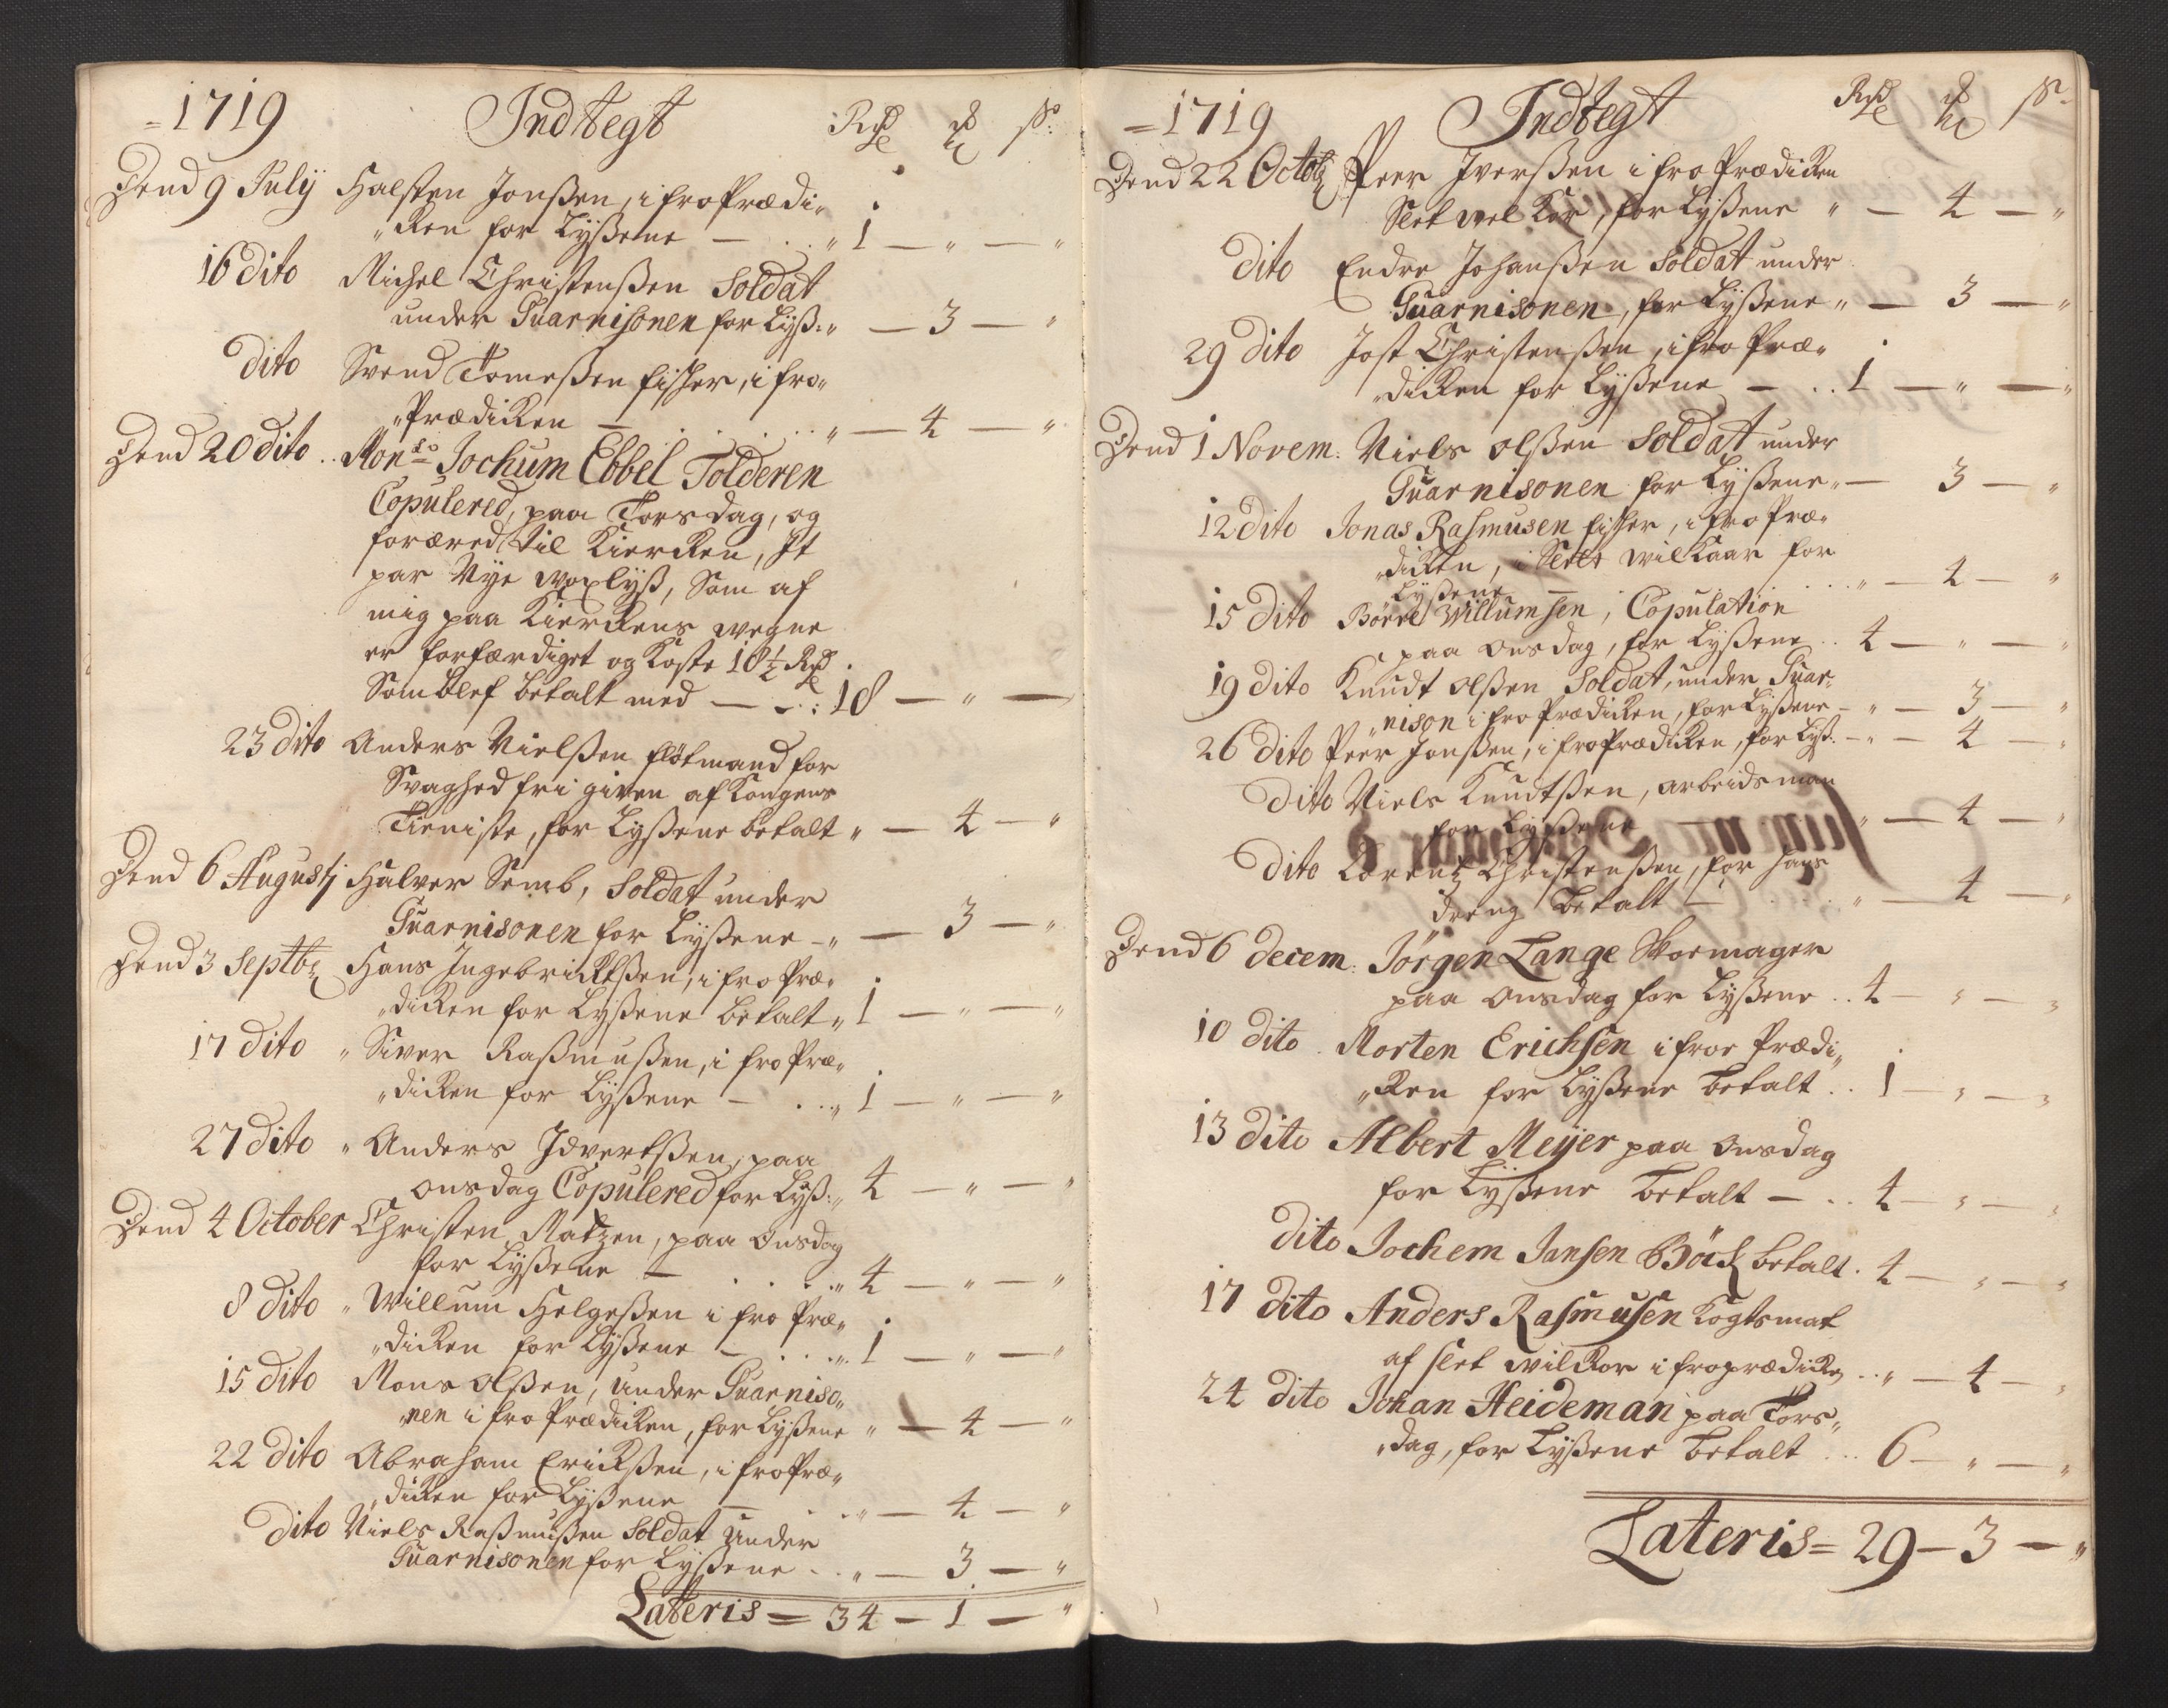 1719 Indtegt Rdr mk ß
Dend 9 Julij Halsten Jonsßen, i fro Prædi„
„ken for Lyßene — .. „ 1 — „ — „
16 dito Michel Christensßen Soldat
under Guarnisonen for Lyß: „ — 3 — „
dito Svend Tomesßen fisker, i fro„
„Prædicken — . . . „ — 4 — „
Dend 20 dito .. Monsr Jochum Ebbel Tolderen
Copulered, paa Torsdag, og
foræred til Kiercken, It
par Nye woxlyß, Som af
mig paa Kierckens wegne
er forfærdiget og Koste 18½ Rdr
Som blef betalt med — . . : 18 — „ —
23 dito Anders Nielsßen flötmand for
Svaghed fri given af Kongens
Tieniste, for Lyßene betalt „ — 4 — „
Dend 6 Augustj Halver Semb, Soldat under
Guarnisonen for Lyßene — „ — 3 — „
Dend 3 Septbr Hans Ingebricktsßen, i fro Præ„
„dicken for Lyßene betalt „ 1 — „ — „
17 dito „ Siver Rasßmusßen, i fro Præ„
„dicken for Lyßene — . . „ 1 — „ — „
27 dito „ Anders Idvertsßen, paa
onsdag Copulered for Lyß: „ 4 — „ — „
Dend 4 October Christen Matzen, paa Onsdag
for Lyßene — . . . „ 4 — „ — „
8 dito „ Willum Helgesßen i fro Præ„
„dicken for Lyßene — . . . „ 1 — „ — „
15 dito Mons Olsßen, under Guarniso„
„nen i fro Prædicken, for Lyßene „ — 4 — „
22 dito Abraham Ericksßen, i fro Præ„
„dicken for Lyßene — . . „ — 4 — „
dito Niels Rasßmusßen Soldat under
Guarnisonen for Lyßene . . „ — 3 — „
Lateris = 34 — 1 — „
1719 Indtegt Rdr mk ß
Dend 22 Octobr Peer Iversßen i fro Prædicken
Slet vel Kor, for Lyßene „ — 4 — „
dito Endre Johansßen Soldat under
Guarnisonen, for Lyßene „ — 3 — „
29 dito Jost Christensßen, i fro Præ„
„dicken for Lyßene — . . 1 — „ — „
Dend 1 Novem: Niels Olsßen Soldat under
Guarnisonen for Lyßene „ — 3 — „
12 dito Jonas Rasmusen fisker, i fro Præ„
„dicken, i Slet wilkaar for
Lyßene — . . . „ — 4 — „
15 dito Börre Willumsen, Copulation
paa Onsdag, for Lyßene . . 4 — „ — „
19 dito Knudt Olsßen Soldat, under Guar„
„nison i fro Prædicken, for Lyßene — „ — 3 — „
26 dito Peer Jonsßen, i fro Prædicken, for Lyß: — „ — 4 — „
dito Niels Knudtsßen, arbeidsman
for Lyßene — „ — 4 — „
dito Lorentz Christensßen, for hans
dreng betalt — . . „ — 4 — „
Dend 6 decem: Jörgen Lange Skoemager
paa Onsdag for Lyßene . . 4 — „ — „
10 dito . Morten Erichsen i froe Prædi„
„ken for Lyßene betalt . . 1 — „ — „
13 dito Albert Meÿer paa Onsdag
for Lyßene betalt — . . 4 — „ — „
dito Jochem Jansen Böch betalt . 4 — „ — „
17 dito Anders Rasmusen Kogtsmat
af slet wilkor i froprædicken . . „ — 4 — „
24 dito Johan Heideman paa Tors„
„dag, for Lyßene betalt . . . 6 — „ — „
Lateris = 29 — 3 — „